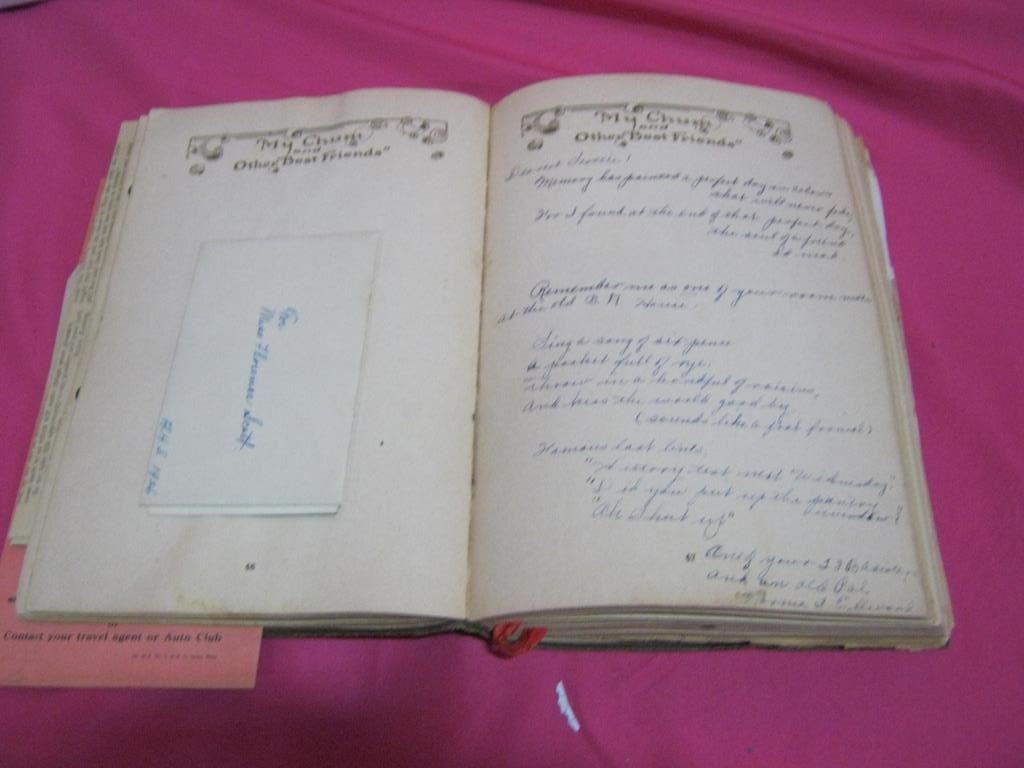 "My Chum
and
Other Best Friends"
For
Miss Florence
1926
66
"My Chum
and
Other Best Friends"
Dearest
Memory has painted a perfect day in colors
that will never fade,
For I found at the end of that perfect day,
the soul of a friend
Remember me as one of your room mates
at the old B. N. House.
Sing a song of six pence
a pocket full of rye,
throw in a handful of raisins,
and kiss the world good by
(sounds like a
Famous last lines.
"History test next Wednesday."
"Did you put up the pantry
window?
"Ah shut up"
67
One of your
and an old Pal,
Norma
Contact your travel agent or Auto Club